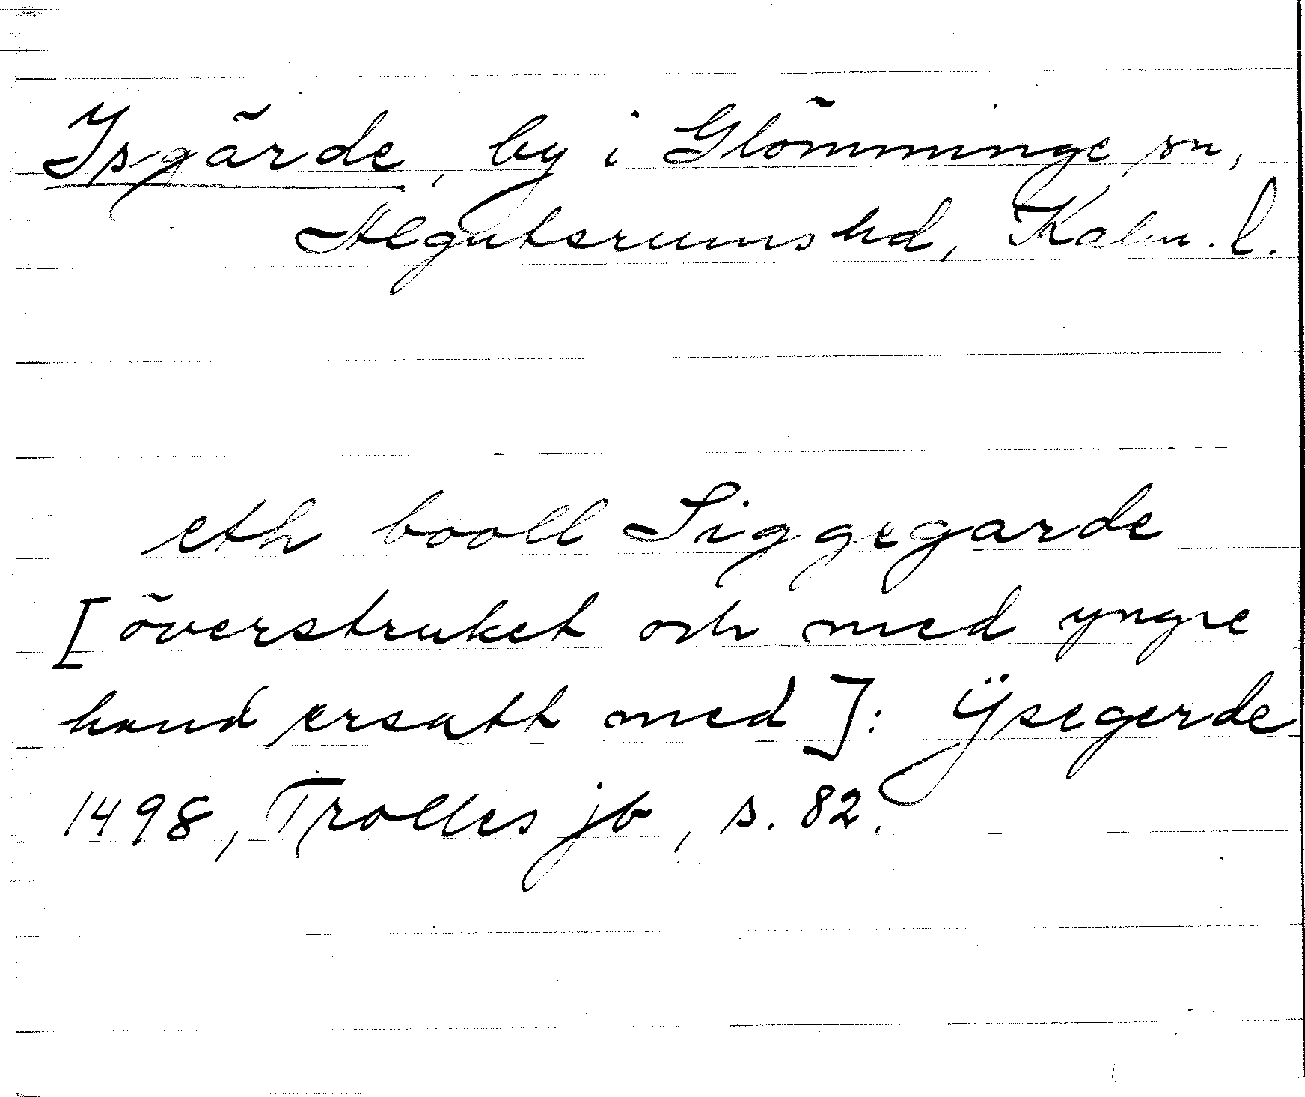 Isgärde, by i Glömminge sn,
Algutsrums hd, Kalm. l.
eth booll Siggegarde
[överstruket och med yngre
hand ersatt med]: Ÿsegerde
1498, Trolles jb, s. 82.